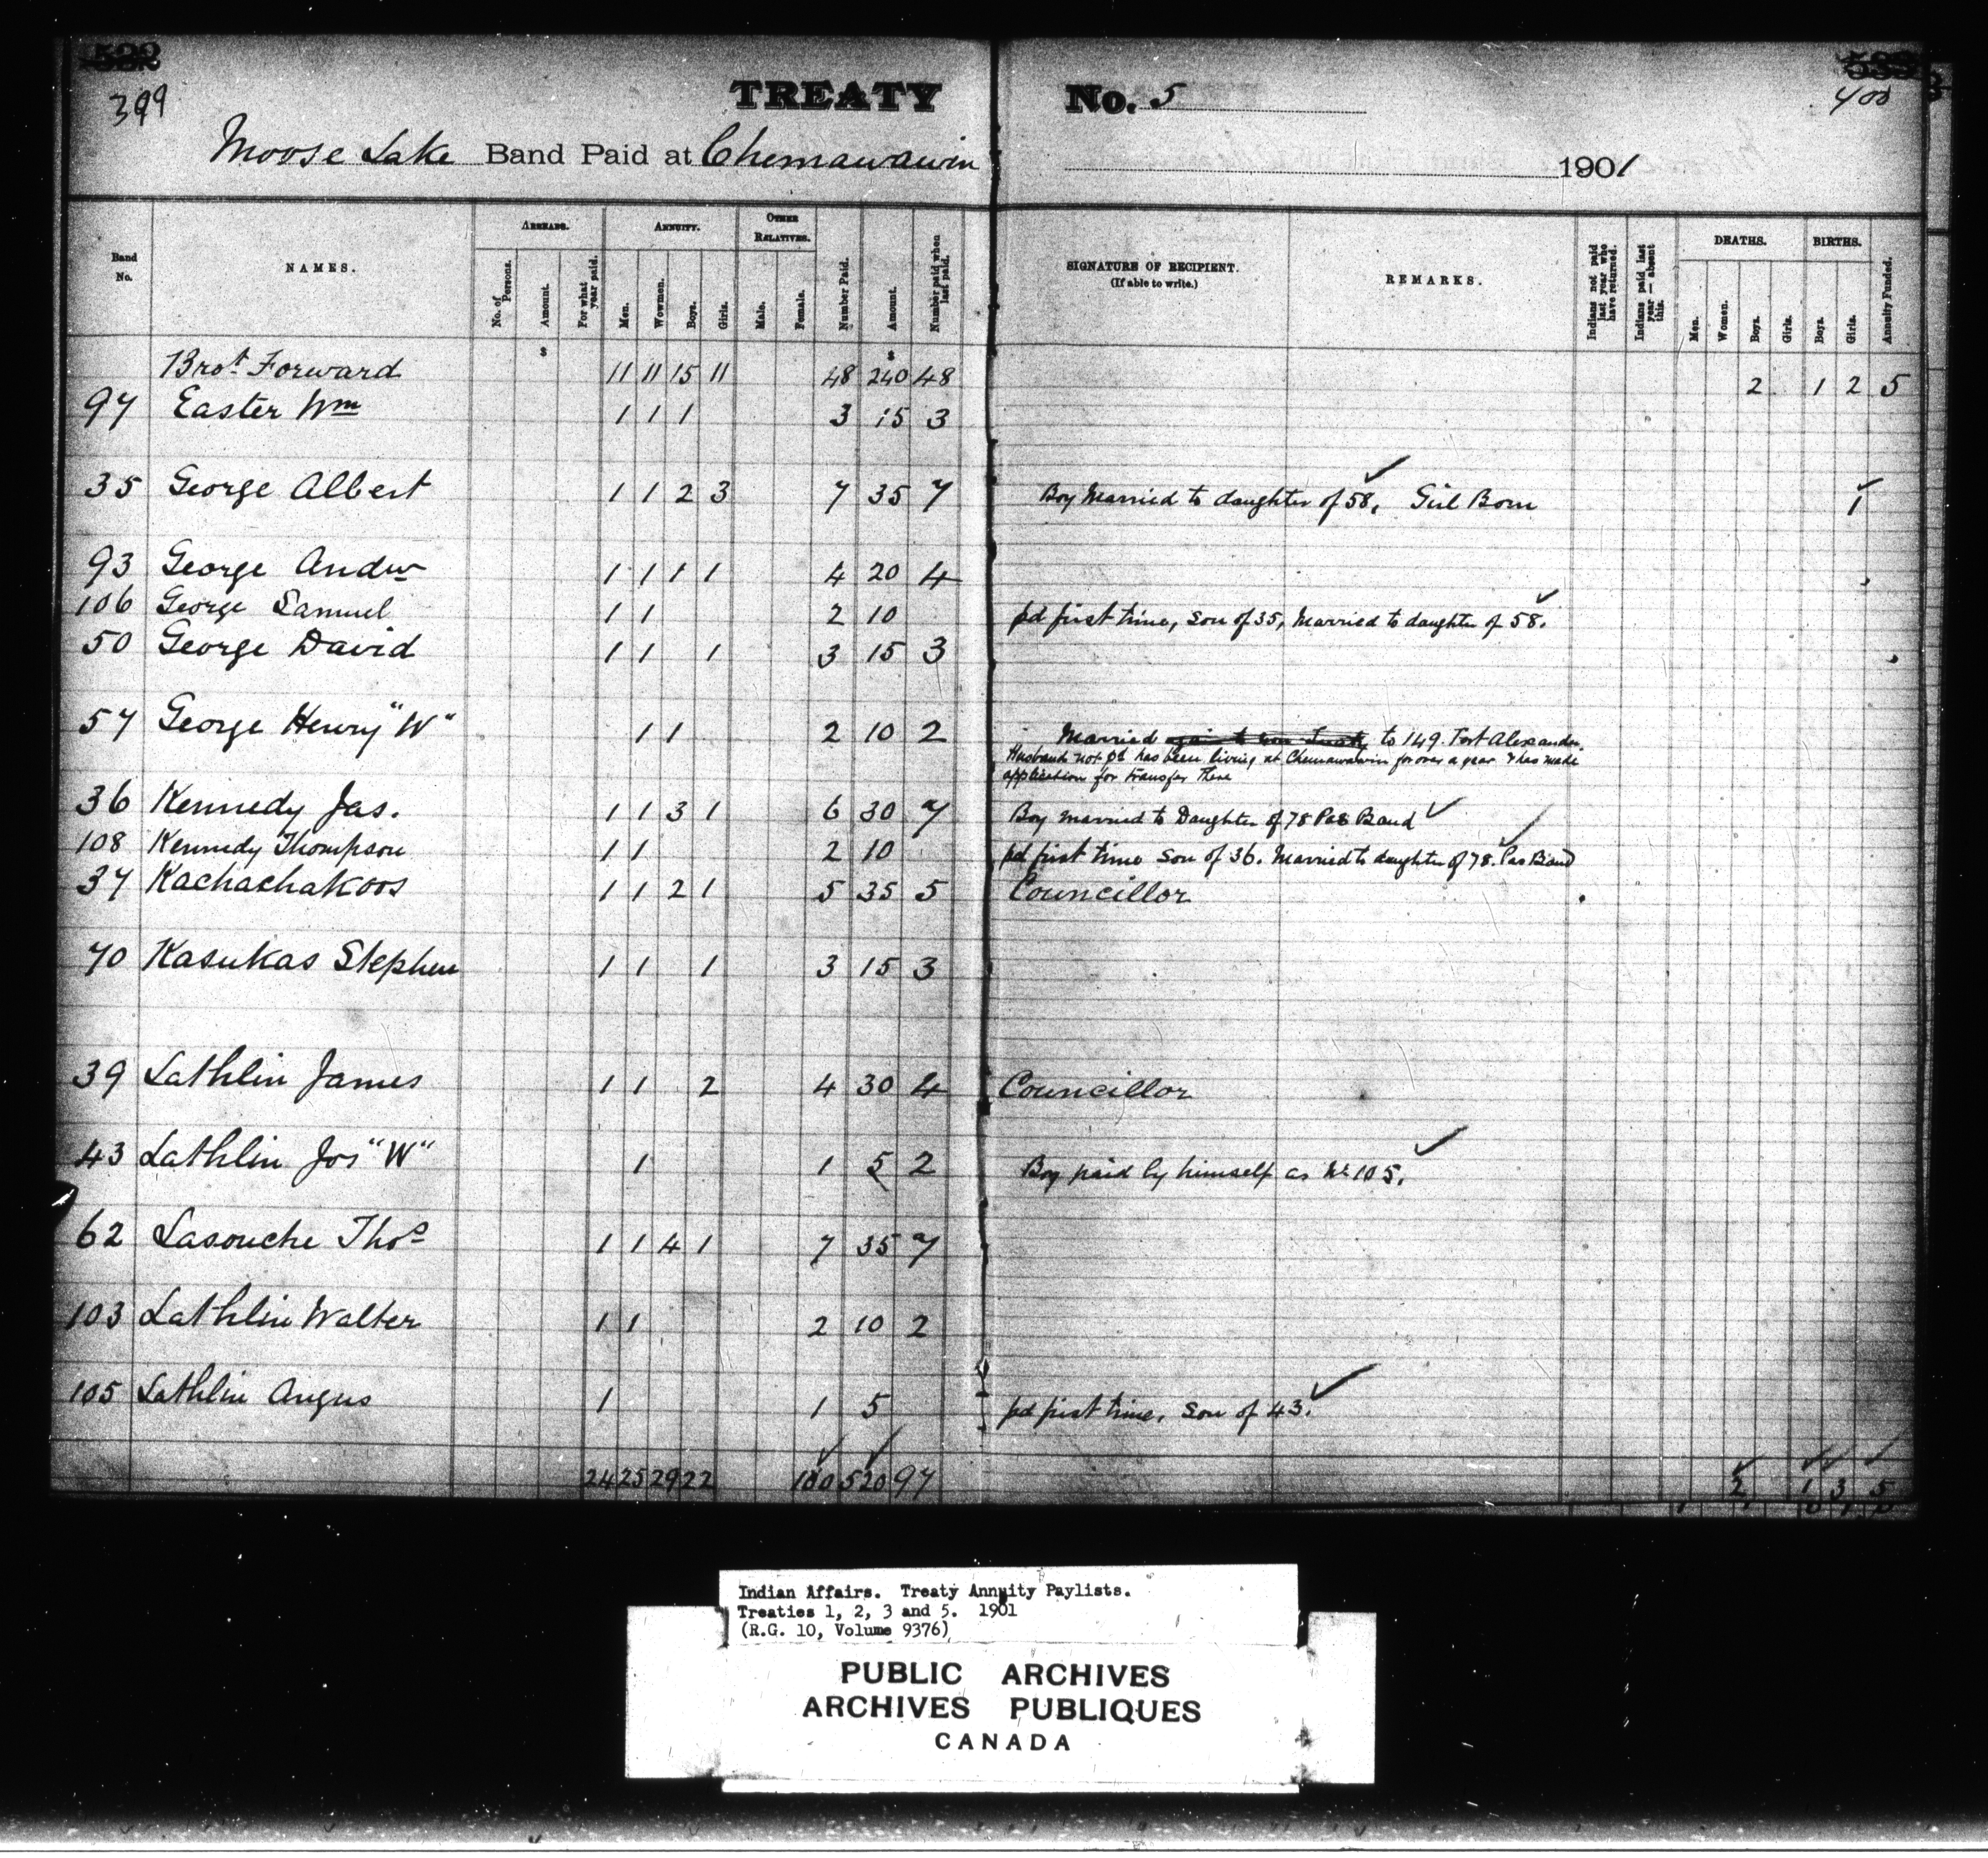 399
400
TREATY No. 5
Moose Lake Band Paid at Chemawawin 1901
Band No.
NAMES.
ARREARS.
No. of Persons.
Amount.
For what year paid.
ANNUITY.
Men.
Women.
Boys.
Girls.
OTHER RELATIVES.
Male.
Female.
Number Paid.
Amount.
Number paid when last paid.
SIGNATURE OF RECIPIENT.
(If able to write.)
REMARKS.
Indians not paid last year who have returned.
Indians paid last year — absent this.
DEATHS.
Men.
Women.
Boys.
Girls.
BIRTHS.
Boys.
Girls.
Annuity Funded.
$ $
Brot. Forward 11 11 15 11 48 240 48 2 1 2 5
97 Easter Wm 1 1 1 3 15 3
35 George Albert 1 1 2 3 7 35 7 Boy Married to daughter of 58. Girl Born 1
93 George Andw 1 1 1 1 4 20 4
106 George Samuel 1 1 2 10 pd first time, son of 35, Married to daughter of 58.
50 George David 1 1 1 3 15 3
57 George Henry "W" 1 1 2 10 2 Married to 149. Fort Alexander.
Husband not pd has been living at Chemawawin for over a year & has made
application for transfer there
36 Kennedy Jas. 1 1 3 1 6 30 7 Boy married to Daughter of 78 Pas Band
108 Kennedy Thompson 1 1 2 10 pd first time son of 36. Married to daughter of 78. Pas Band
37 Kachachakoos 1 1 2 1 5 35 5 Councillor
70 Kasukas Stephen 1 1 1 3 15 3
39 Lathlin James 1 1 2 4 30 4 Councillor
43 Lathlin Jos "W" 1 1 5 2 Boy paid by himself as No 105.
62 Lasouche Thos 1 1 4 1 7 35 7
103 Lathlin Walter 1 1 2 10 2
105 Lathlin Angus 1 1 5 pd first time, son of 43.
24 25 29 22 100 520 97 2 1 3 5
Indian Affairs. Treaty Annuity Paylists.
Treaties 1, 2, 3 and 5. 1901
(R.G. 10, Volume 9376)
PUBLIC ARCHIVES
ARCHIVES PUBLIQUES
CANADA